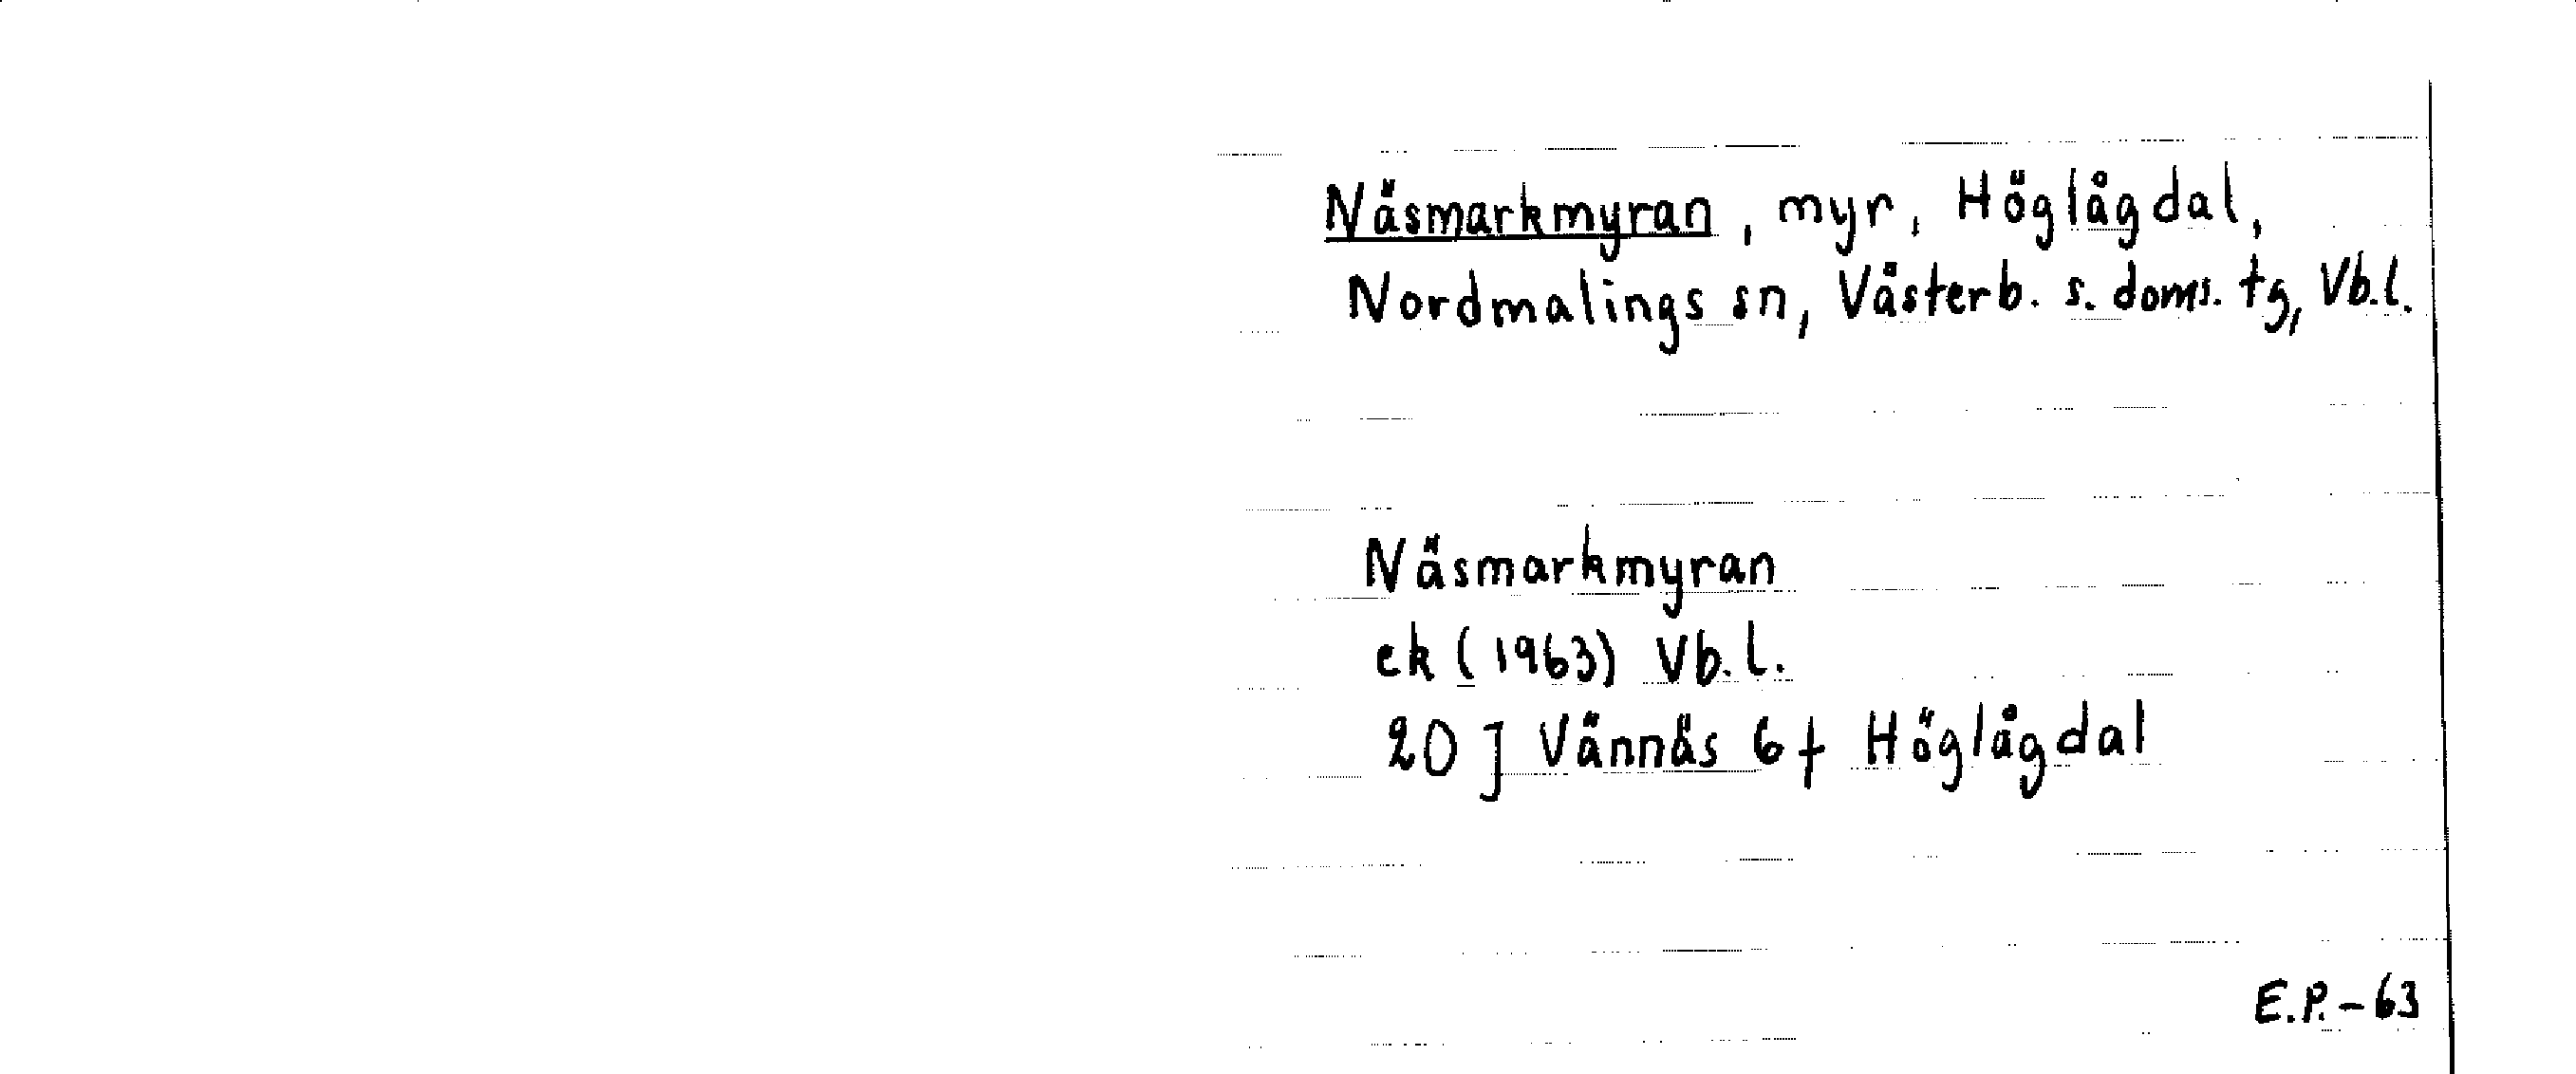 Näsmarkmyran, myr, Höglågdal,
Nordmalings sn, Västerb. s. doms. tg, Vb.l.
Näsmarkmyran
ek (1963) Vb.l.
20 J Vännäs 6 f Höglågdal
E.P.-63